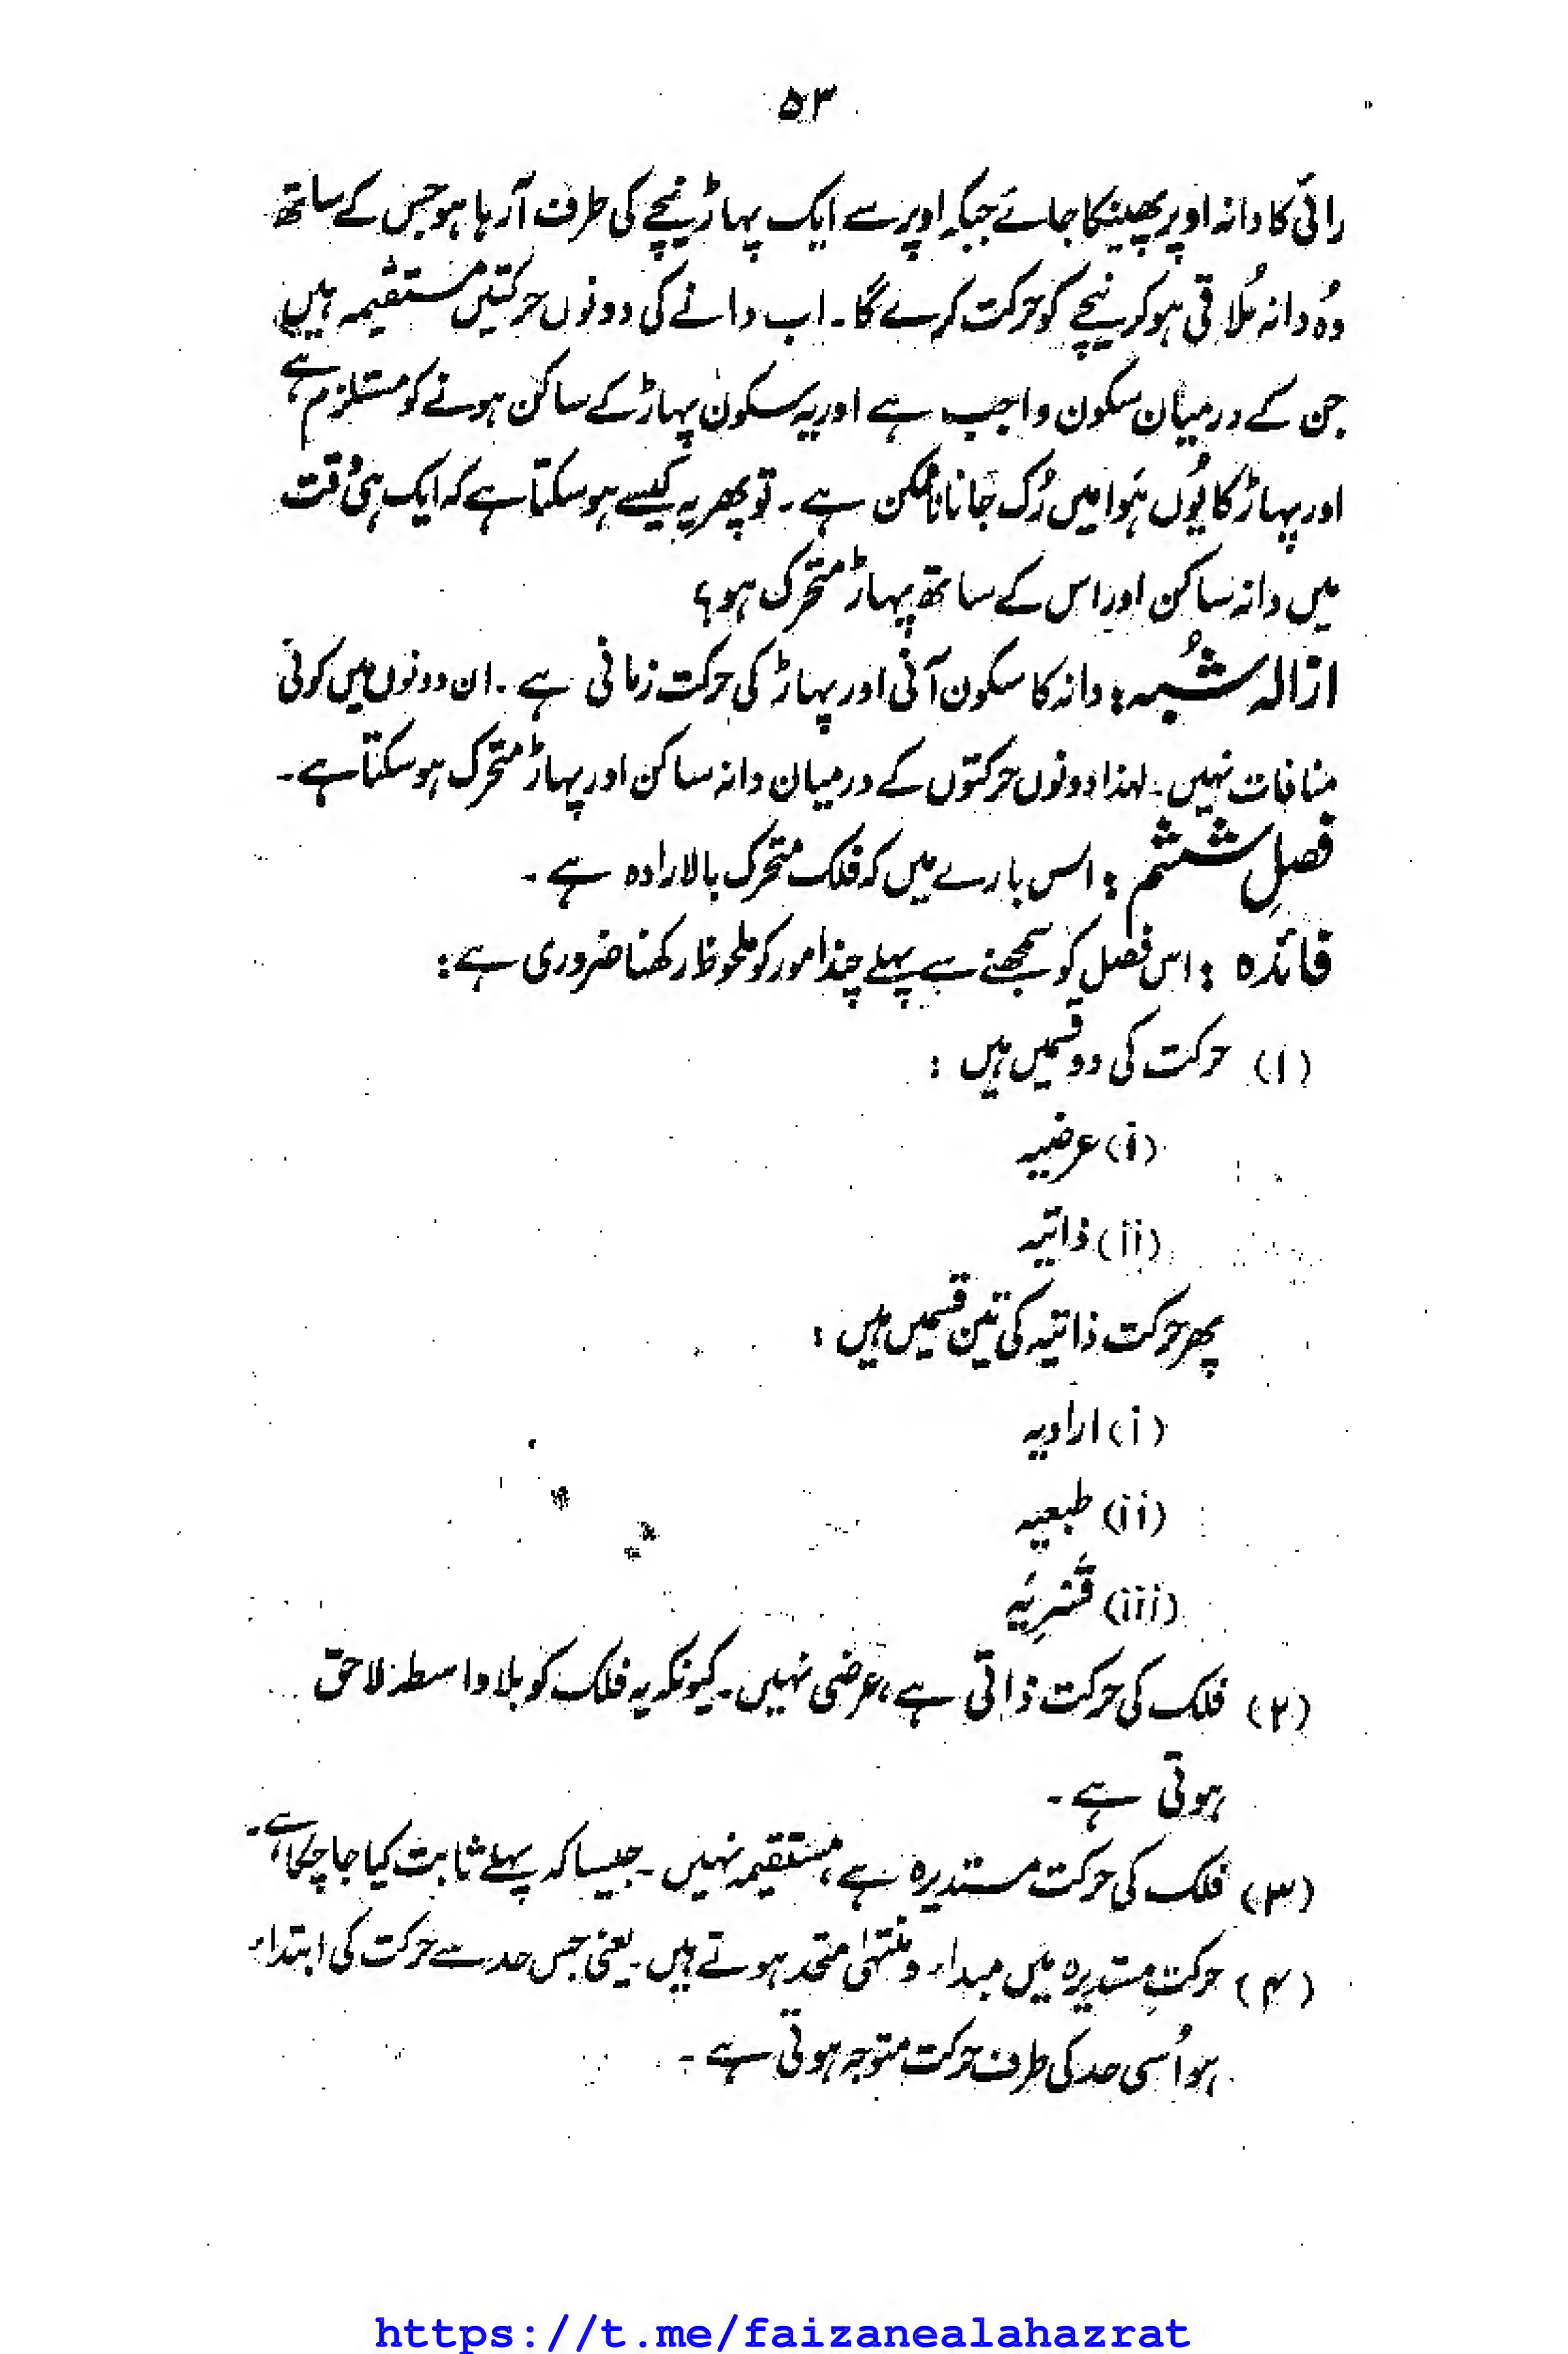 ۵۳
رائی کا دانہ اوپر پھینکا جائے جبکہ اوپر سے ایک پہاڑ نیچے کی طرف آ رہا ہو جس کے ساتھ
وُہ دانہ مُلاقی ہو کر نیچے کو حرکت کرے گا۔ اب دانے کی دونوں حرکتیں مستقیمہ ہیں
جن کے درمیان سکون واجب ہے اور یہ سکون پہاڑ کے ساکن ہونے کو مستلزم ہے
اور پہاڑ کا یُوں ہَوا میں رُک جانا ناممکن ہے۔ تو پھر یہ کیسے ہو سکتا ہے کہ ایک ہی وُقت
میں دانہ ساکن اور اس کے ساتھ پہاڑ متحرک ہو؟
ازالہ شُبہ : دانہ کا سکون آنی اور پہاڑ کی حرکت زمانی ہے۔ ان دونوں میں کوئی
منافات نہیں۔ لہذا دونوں حرکتوں کے درمیان دانہ ساکن اور پہاڑ متحرک ہو سکتا ہے۔
فصلِ ششم : اس بارے میں کہ فلک متحرک بالارادہ ہے۔
فائدہ : اس فصل کو سمجھنے سے پہلے چند امور کو ملحوظ رکھنا ضروری ہے :
(۱) حرکت کی دو قسمیں ہیں :
(i) عرضیہ
(ii) ذاتیہ
پھر حرکت ذاتیہ کی تین قسمیں ہیں :
(i) ارادیہ
(ii) طبعیہ
(iii) قَسْرِیَہ
(۲) فلک کی حرکت ذاتی ہے، عرضی نہیں۔ کیونکہ یہ فلک کو بلا واسطہ لاحق
ہوتی ہے۔
(۳) فلک کی حرکت مستدیرہ ہے، مستقیمہ نہیں۔ جیسا کہ پہلے ثابت کیا جا چکا ہے۔
(۴) حرکتِ مستدیرہ میں مبداء و منتہٰی متحد ہوتے ہیں۔ یعنی جس حد سے حرکت کی ابتداء
ہو اُسی حد کی طرف حرکت متوجہ ہوتی ہے۔
https://t.me/faizanealahazrat